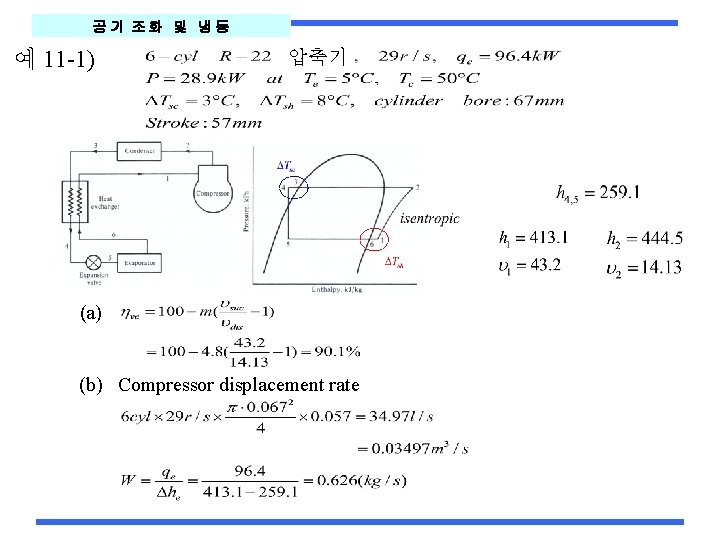 공기 조화 및 냉동
예 11-1)
6 − cyl R − 22 압축기, 29r / s, q_e = 96.4kW
P = 28.9kW at T_e = 5°C, T_c = 50°C
ΔT_sc = 3°C, ΔT_sh = 8°C, cylinder bore : 67mm
Stroke : 57mm
3
Condenser
2
1
Heat exchanger
Compressor
4
6
5
Expansion valve
Evaporator
Pressure, kPa
ΔT_sc
4
3
2
isentropic
5
6
1
ΔT_sh
Enthalpy, kJ/kg
h_4,5 = 259.1
h_1 = 413.1 h_2 = 444.5
υ_1 = 43.2 υ_2 = 14.13
(a) η_vc = 100 − m(υ_suc/υ_dis − 1)
= 100 − 4.8(43.2/14.13 − 1) = 90.1%
(b) Compressor displacement rate
6cyl × 29r / s × π · 0.067²/4 × 0.057 = 34.97l / s
= 0.03497m³ / s
W = q_e/Δh_e = 96.4/413.1 − 259.1 = 0.626(kg / s)